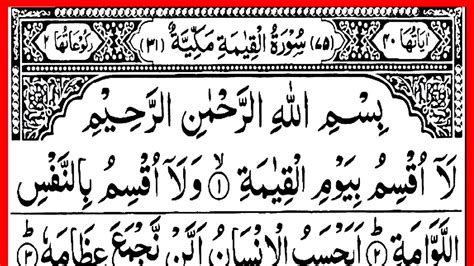 اٰيَاتُهَا ٤٠ (٧٥) سُوْرَةُ الْقِيٰمَةِ مَكِّيَّةٌ (٣١) رُكُوْعَاتُهَا ٢
بِسْمِ اللهِ الرَّحْمٰنِ الرَّحِيْمِ
لَاۤ اُقْسِمُ بِيَوْمِ الْقِيٰمَةِ ۙ﴿١﴾ وَلَاۤ اُقْسِمُ بِالنَّفْسِ
اللَّوَّامَةِ ؕ﴿٢﴾ اَيَحْسَبُ الْاِنْسَانُ اَلَّنْ نَّجْمَعَ عِظَامَهٗ ؕ﴿٣﴾